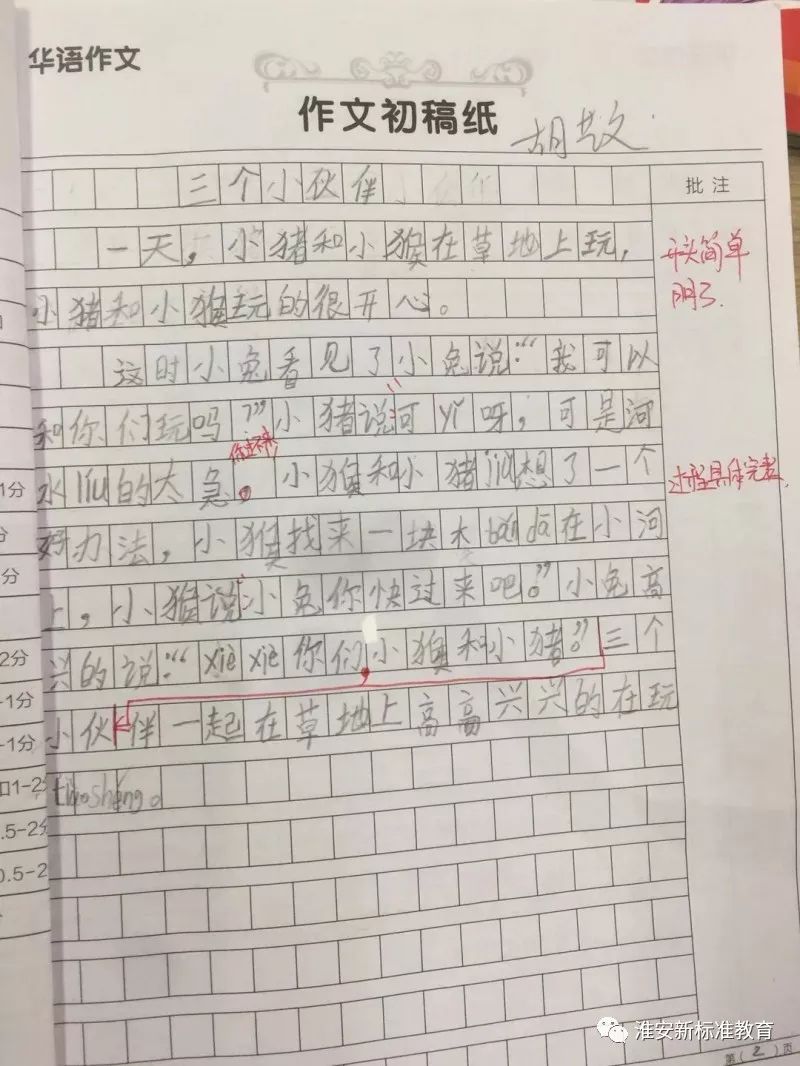 华语作文
作文初稿纸
胡艺文
批注
三个小伙伴
一天，小猪和小猴在草地上玩，
开头简单
明了.
小猪和小猴玩的很开心。
这时小兔看见了小兔说：“我可以
和你们玩吗？”小猪说：“可yǐ呀，可是河
你过不来
水liú的太急。小猴和小猪jiù想了一个
过程具体完整.
好办法，小猴找来一块木bǎn dā在小河
上，小猴说：小兔你快过来吧。”小兔高
兴的说：“xiè xiè你们，小猴和小猪。”三个
小伙伴一起在草地上高高兴兴的在玩
tiào shéng。
1分
分
2分
-1分
-1分
扣1-2分
.5-2分
0.5-2
淮安新标准教育
第(2)页